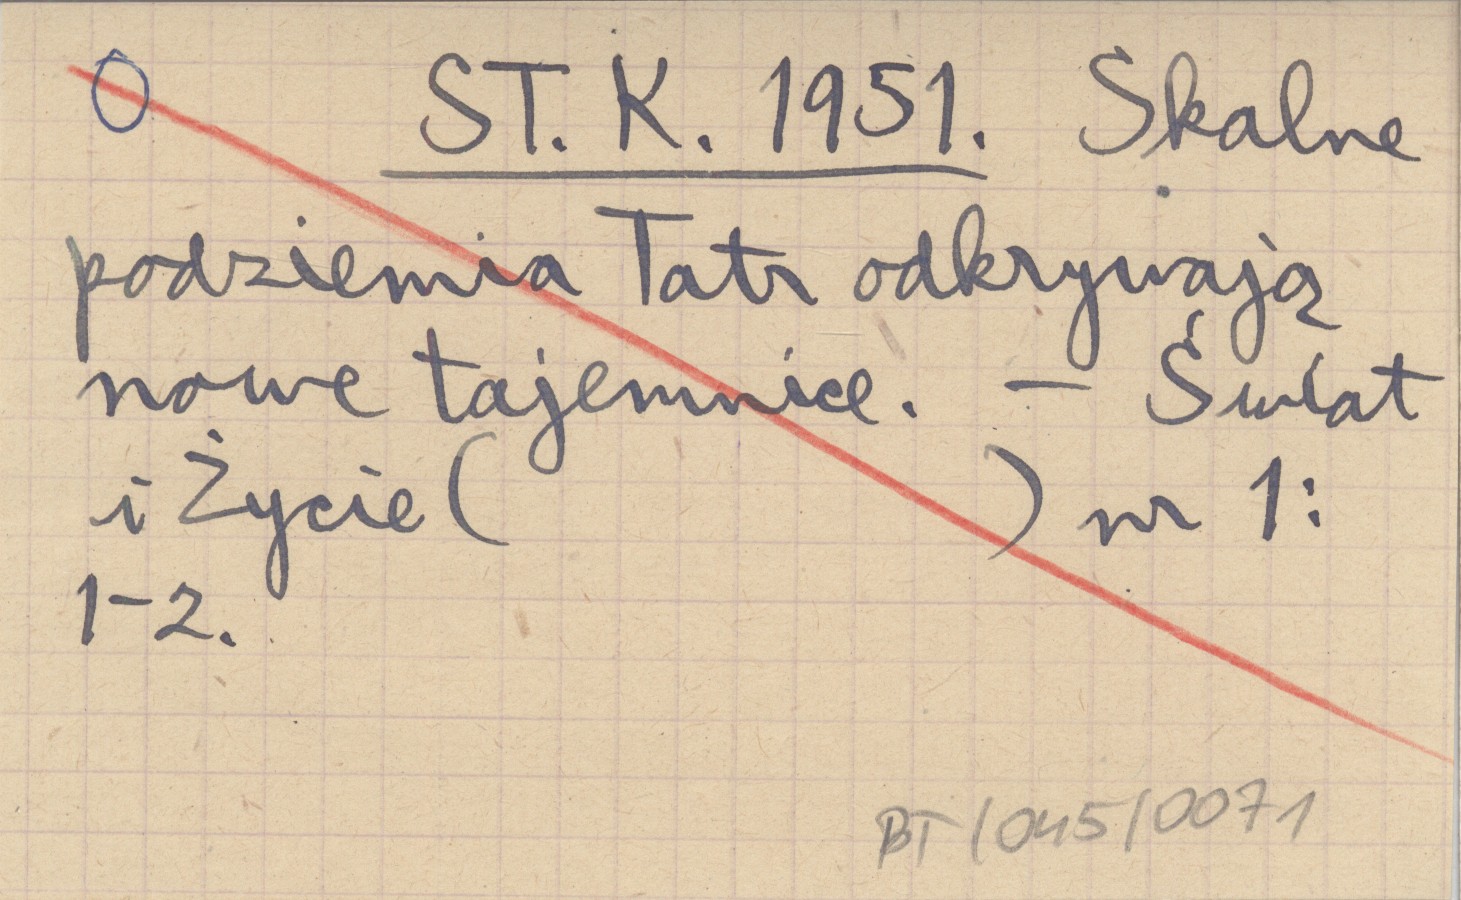 O ST. K. 1951. Skalne
podziemia Tatr odkrywają
nowe tajemnice. – Świat
i Życie ( ) nr 1:
1-2.
BT/045/0071